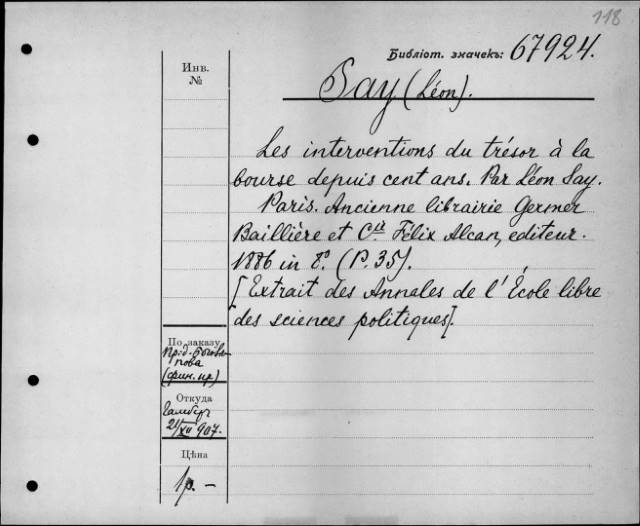 118
Библіот. значекъ: 67924.
Инв.
№
Say (Léon).
Les interventions du trésor à la
bourse depuis cent ans. Par Léon Say.
Paris. Ancienne librairie Germer
Baillière et Cie. Félix Alcan, editeur.
1886 in 8°. (P. 35).
[Extrait des Annales de l'École libre
des sciences politiques].
По заказу
(фин. пр)
Откуда
21/XII 907.
Цѣна
1 р. -